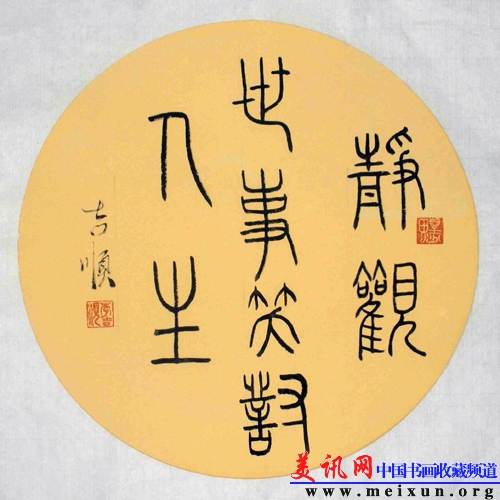 靜觀
世事笑對
人生
吉順
美讯网中国书画收藏频道
www.meixun.org